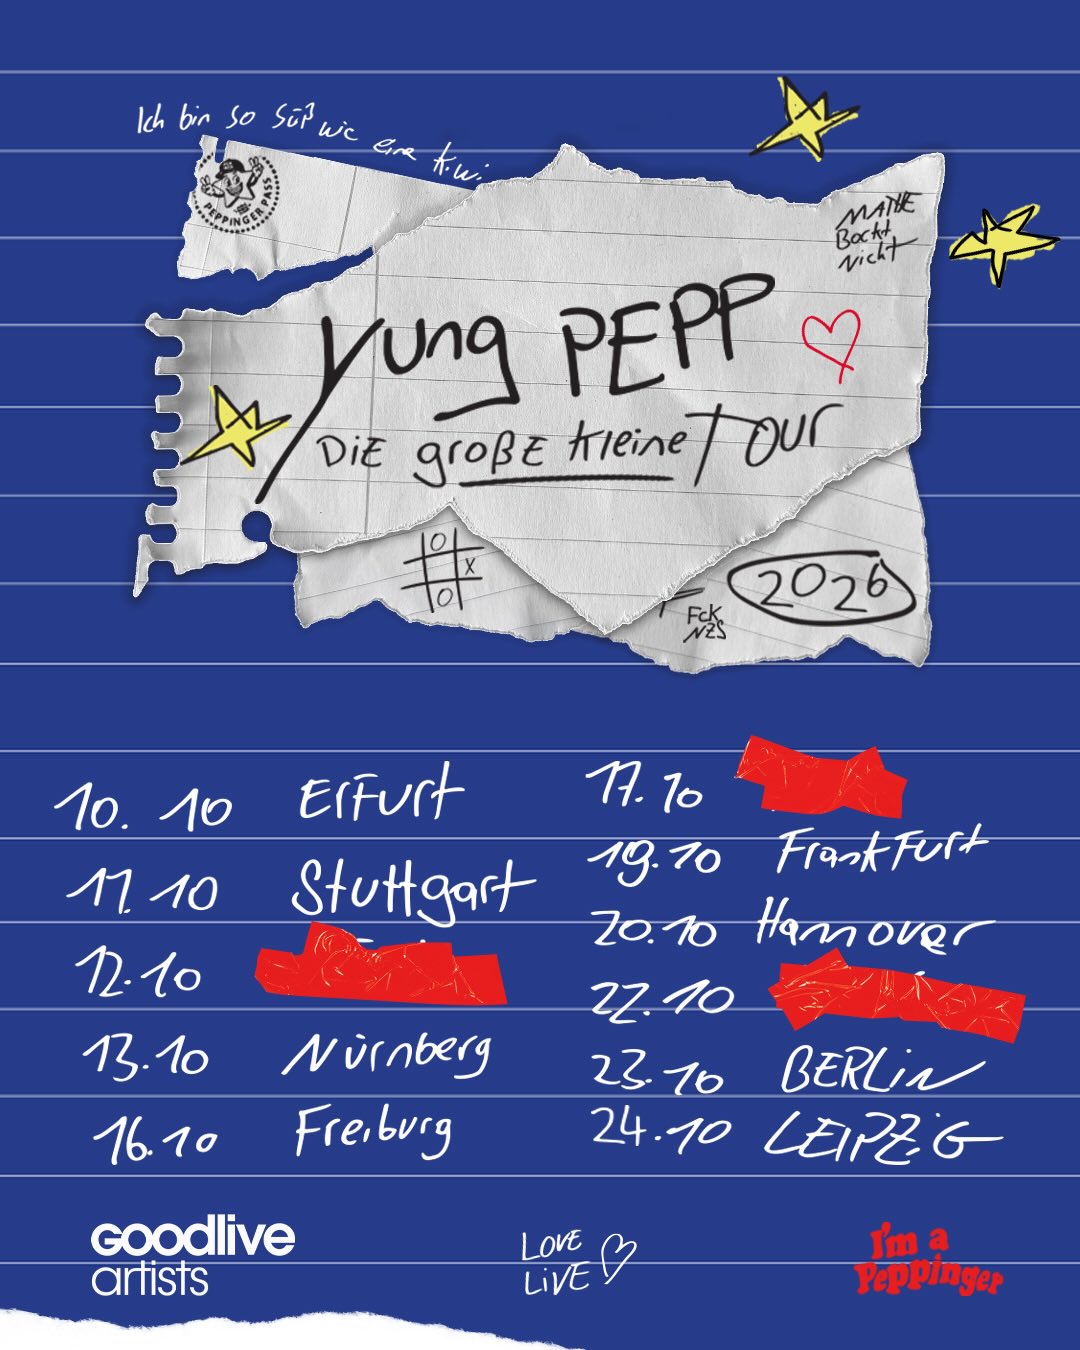 Ich bin so süß wie eine Kiwi
PEPPINGER PASS
MATHE
Bockt
Nicht
Yung PEPP
DIE große kleine Tour
O
X
O
FCK
NZS
2026
10. 10 Erfurt
11. 10 Stuttgart
12.10
13.10 Nürnberg
16.10 Freiburg
17.10
19.10 Frankfurt
20.10 Hannover
22.10
23.10 BERLIN
24.10 LEIPZIG
Goodlive
artists
LOVE
LiVE
I'm a
Peppinger